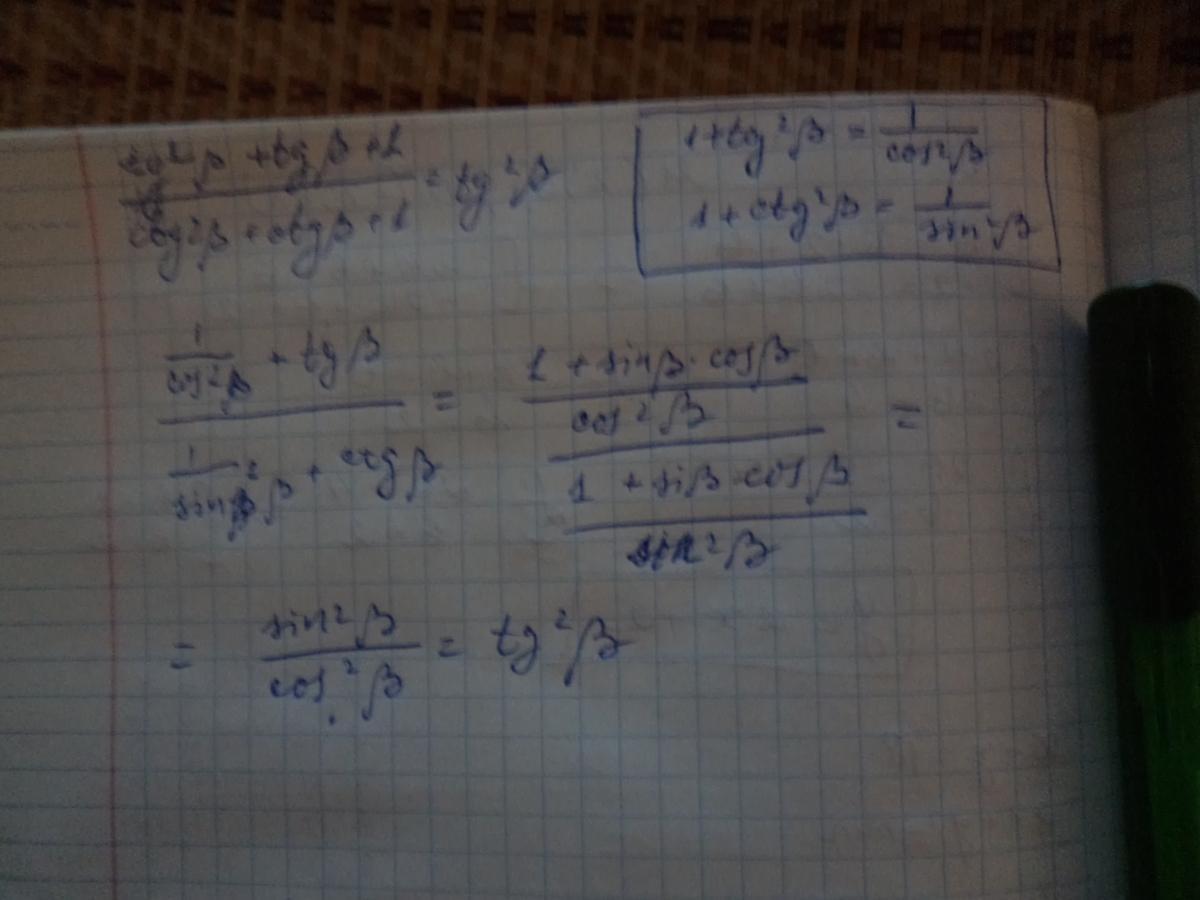 tg²β + tgβ + 1 / ctg²β + ctgβ + 1 = tg²β
1 + tg²β = 1 / cos²β
1 + ctg²β = 1 / sin²β
1 / cos²β + tgβ / 1 / sin²β + ctgβ = 1 + sinβ · cosβ / cos²β / 1 + siβ · cosβ / sin²β =
= sin²β / cos²β = tg²β